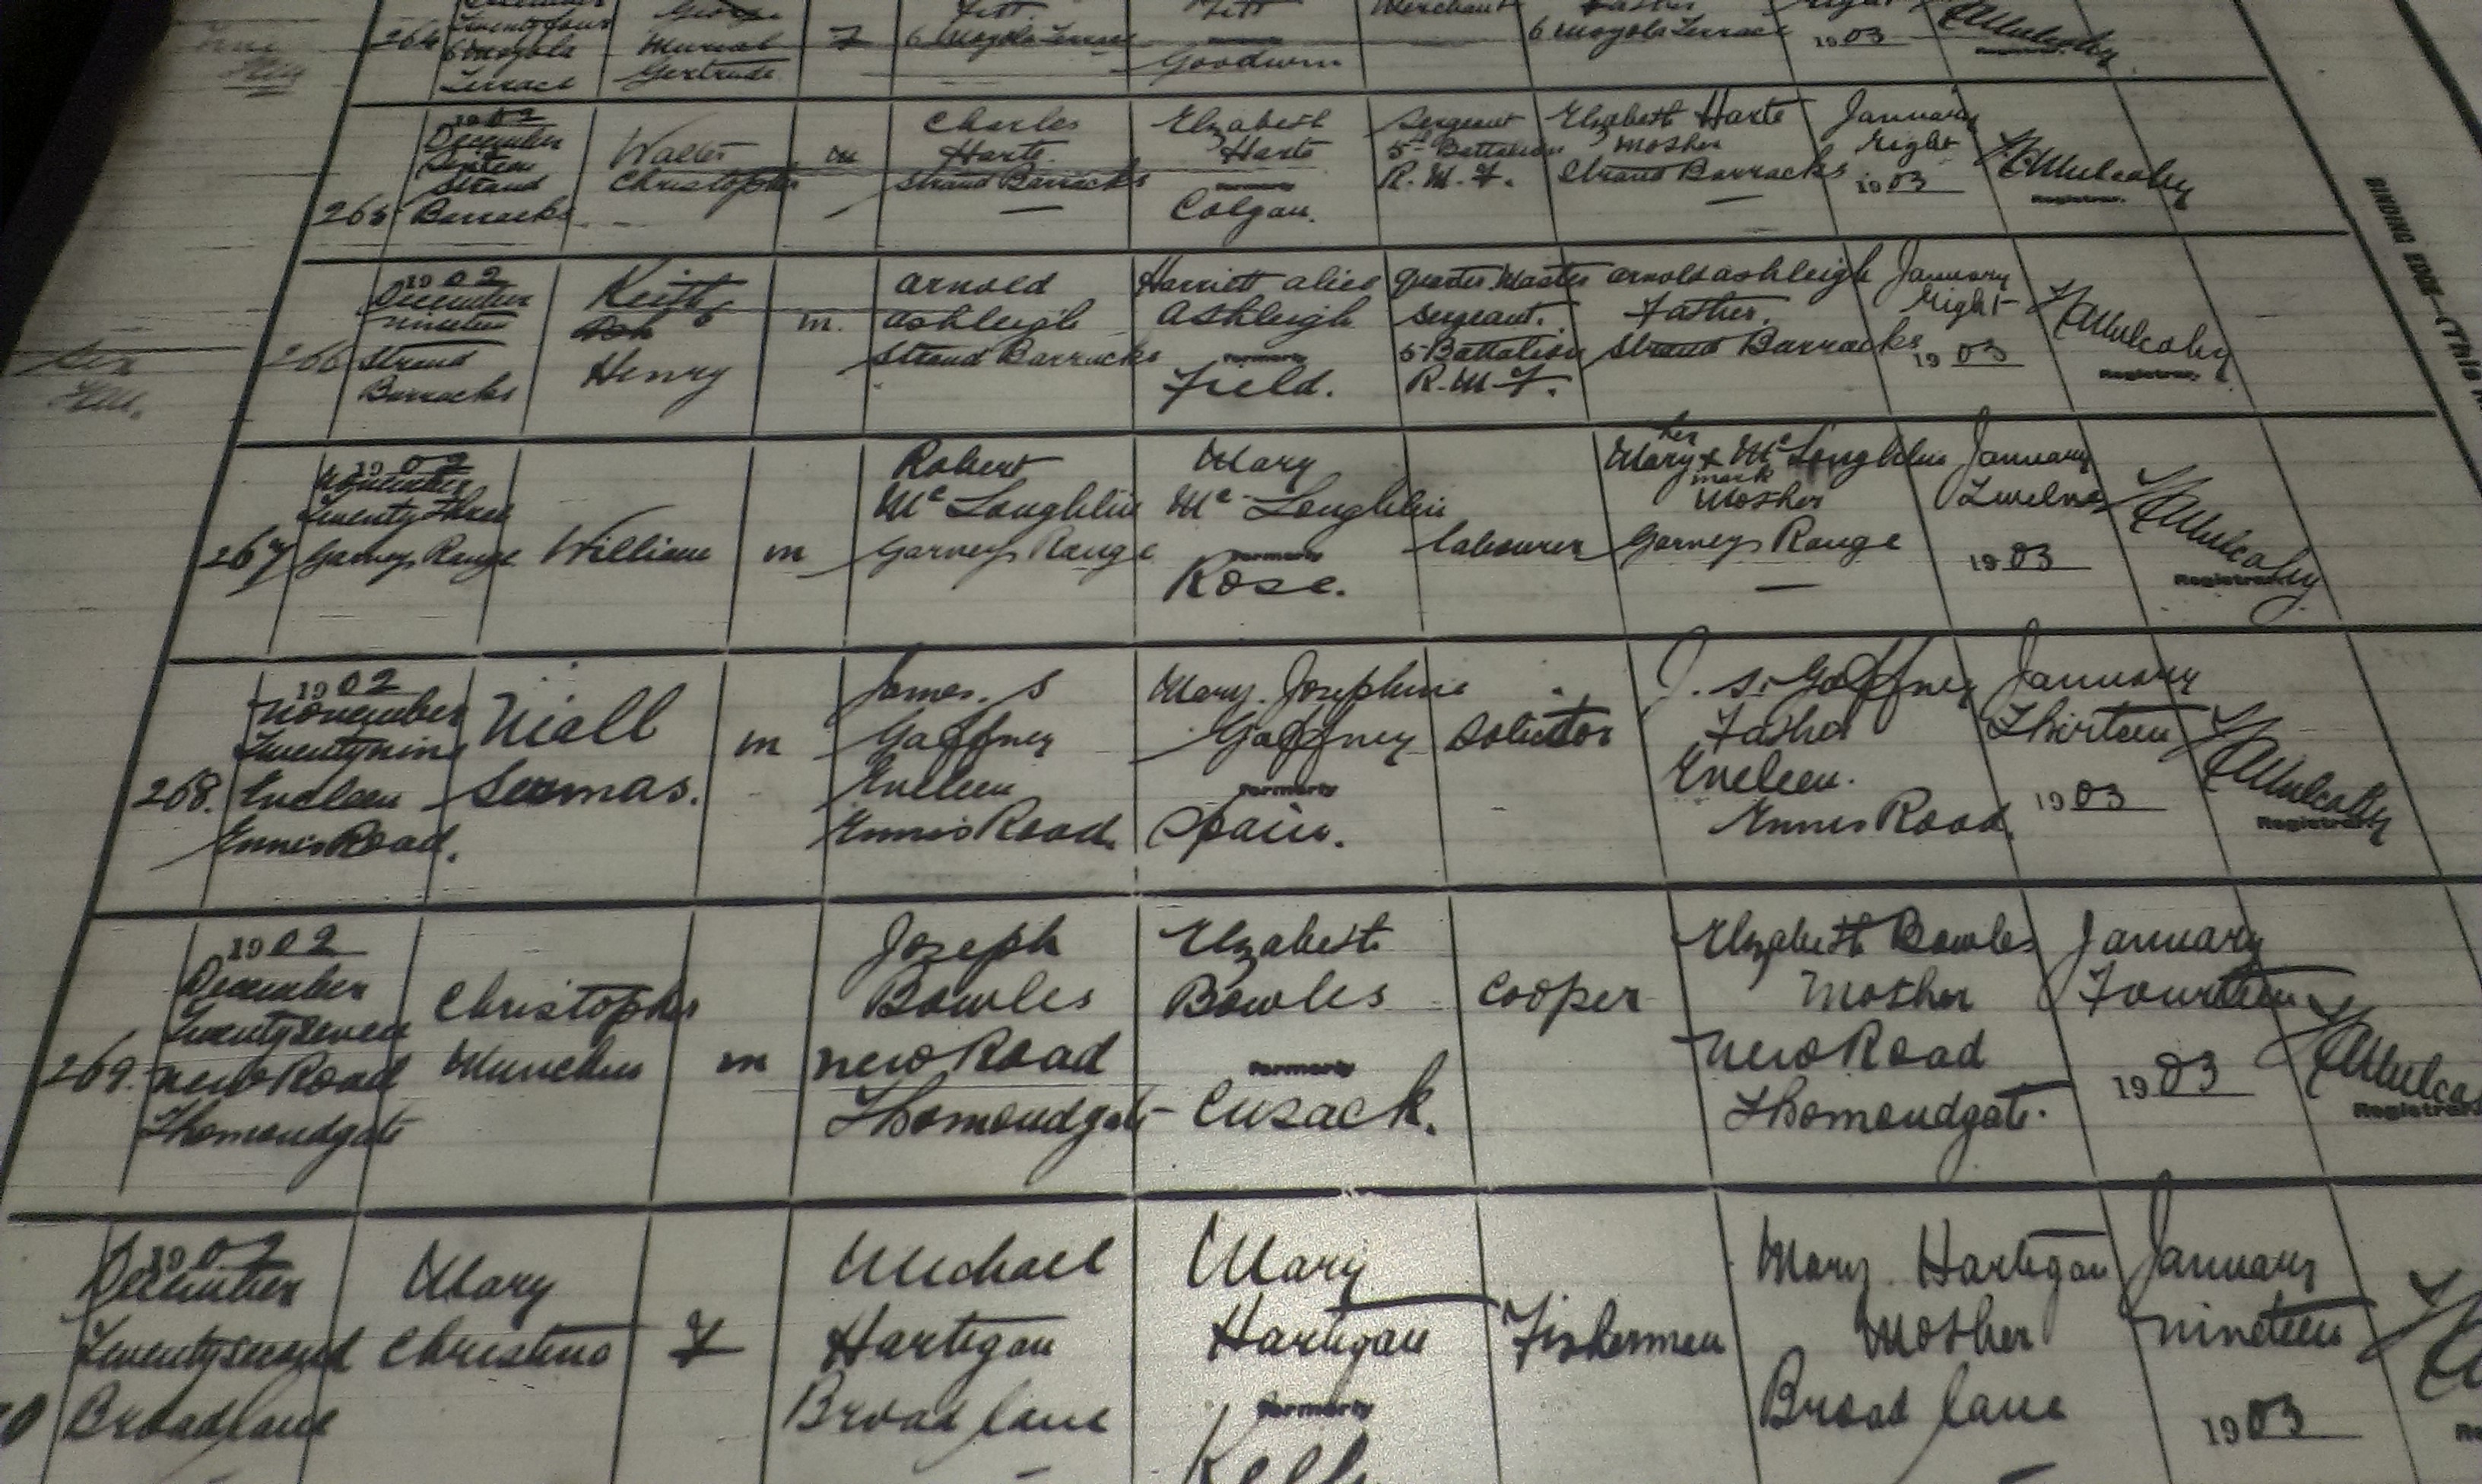 264 Twentyfour George Tett Tett Merchant Father Eight
6 Moyola Muriel F 6 Moyola Terrace 6 Moyola Terrace 1903
Terrace Gertrude Goodwin Registrar.
1902 Charles Elizabeth Sergeant Elizabeth Harte January
December Walter m Harte Harte 5th Battalion Mother Eight
Sixteen Christopher Strand Barracks formerly R.M.F. Strand Barracks 1903 Mulcahy
Strand Colgan. Registrar.
265 Barracks
1902 Keith Arnold Harriett Alice Quarter Master Arnold Ashleigh January
December m. Ashleigh Ashleigh Sergeant. Father. Eight
nineteen Strand Barracks formerly 5 Battalion Strand Barracks 1903 Mulcahy
266 Strand Henry Field. R.M.F. Registrar.
Barracks
her
1902 Robert Mary Mary x McLoughlin January
November McLoughlin McLoughlin mark Twelve
Twenty three Mother
267 Garveys Range William m Garveys Range formerly labourer Garveys Range 1903 Mulcahy
Rose. Registrar.
1902 James. S Mary Josephine J. S. Gaffney January
November Niall m Gaffney Gaffney Solicitor Father Thirteen
Twentynine Seumas. Eveleen formerly Eveleen. 1903 Mulcahy
268. Eveleen Ennis Road. Spain. Ennis Road. Registrar.
Ennis Road.
1902 Joseph Elizabeth Elizabeth Bowles January
December Christopher Bowles Bowles Cooper Mother Fourteen
Twentyseven Munchin m New Road formerly New Road 1903
269. New Road Thomondgate Cusack. Thomondgate. Registrar.
Thomondgate
1902 Michael Mary Mary Hartigan January
December Mary Hartigan Hartigan Fisherman Mother nineteen
Twentysecond Christina F Broad lane formerly Broad lane 1903
0 Broad lane Kelly
BINDING EDGE—(This